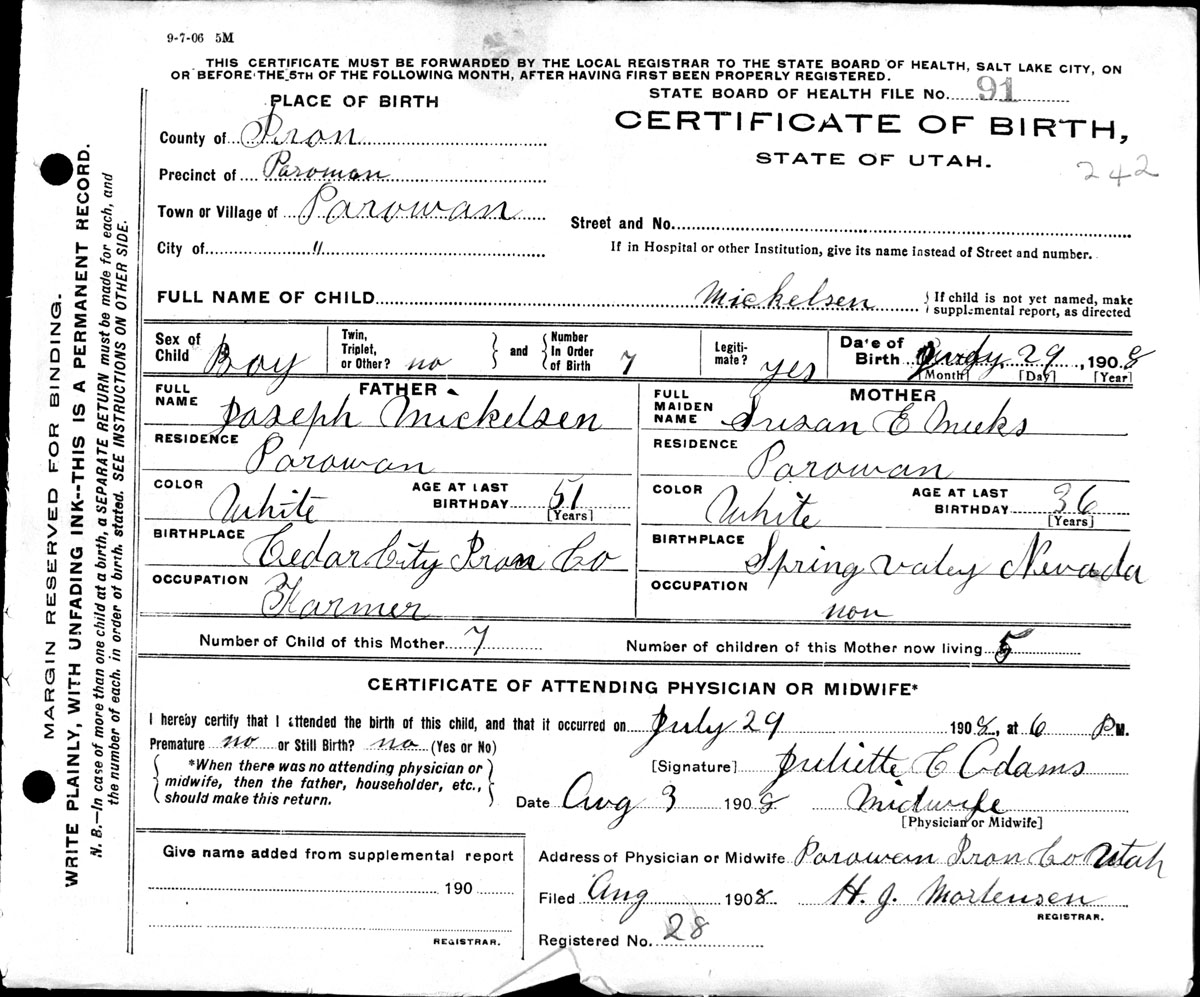 9-7-06 5M
THIS CERTIFICATE MUST BE FORWARDED BY THE LOCAL REGISTRAR TO THE STATE BOARD OF HEALTH, SALT LAKE CITY, ON
OR BEFORE THE 5TH OF THE FOLLOWING MONTH, AFTER HAVING FIRST BEEN PROPERLY REGISTERED.
STATE BOARD OF HEALTH FILE No. 91
PLACE OF BIRTH
CERTIFICATE OF BIRTH,
STATE OF UTAH.
242
County of Iron
Precinct of Parowan
Town or Village of Parowan
City of "
Street and No.
If in Hospital or other Institution, give its name instead of Street and number.
FULL NAME OF CHILD Mickelsen
{If child is not yet named, make
supplemental report, as directed
Sex of Child Boy
Twin, Triplet, or Other? no
and
Number In Order of Birth 7
Legiti- mate? yes
Date of Birth July 29, 1908
[Month] [Day] [Year]
FATHER
FULL NAME Joseph Mickelsen
RESIDENCE Parowan
COLOR White
AGE AT LAST BIRTHDAY 51
[Years]
BIRTHPLACE Cedar City Iron Co
OCCUPATION Farmer
MOTHER
FULL MAIDEN NAME Susan E Meeks
RESIDENCE Parowan
COLOR White
AGE AT LAST BIRTHDAY 36
[Years]
BIRTHPLACE Spring Valey Nevada
OCCUPATION non
Number of Child of this Mother 7
Number of children of this Mother now living 5
CERTIFICATE OF ATTENDING PHYSICIAN OR MIDWIFE*
I hereby certify that I attended the birth of this child, and that it occurred on July 29 1908, at 6 PM.
Premature no or Still Birth? no (Yes or No)
*When there was no attending physician or
midwife, then the father, householder, etc.,
should make this return.
[Signature] Juliette E Adams
Date Aug 3 1908 Midwife
[Physician or Midwife]
Give name added from supplemental report
190
REGISTRAR.
Address of Physician or Midwife Parowan Iron Co Utah
Filed Aug 1908 H. J. Mortensen
REGISTRAR.
Registered No. 28
MARGIN RESERVED FOR BINDING.
WRITE PLAINLY, WITH UNFADING INK--THIS IS A PERMANENT RECORD.
N. B.—In case of more than one child at a birth, a SEPARATE RETURN must be made for each, and
the number of each, in order of birth, stated. SEE INSTRUCTIONS ON OTHER SIDE.